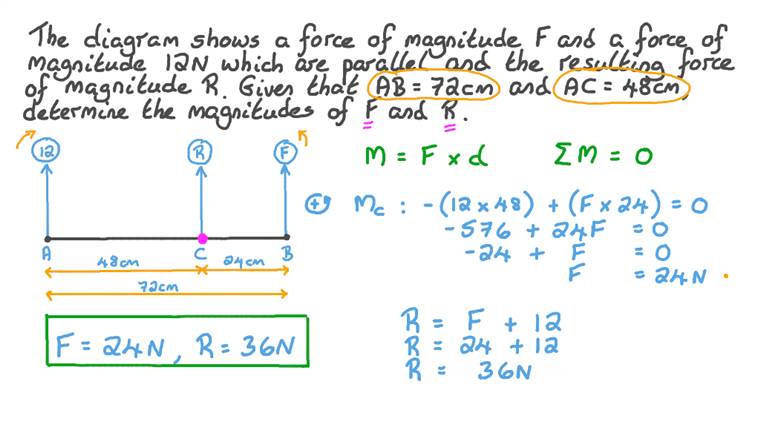 The diagram shows a force of magnitude F and a force of
magnitude 12N which are parallel and the resulting force
of magnitude R. Given that AB = 72cm and AC = 48cm,
determine the magnitudes of F and R.
12 R F
M = F × d ΣM = 0
+ Mc : -(12 × 48) + (F × 24) = 0
-576 + 24F = 0
-24 + F = 0
F = 24N
A C B
48cm 24cm
72cm
F = 24N, R = 36N
R = F + 12
R = 24 + 12
R = 36N